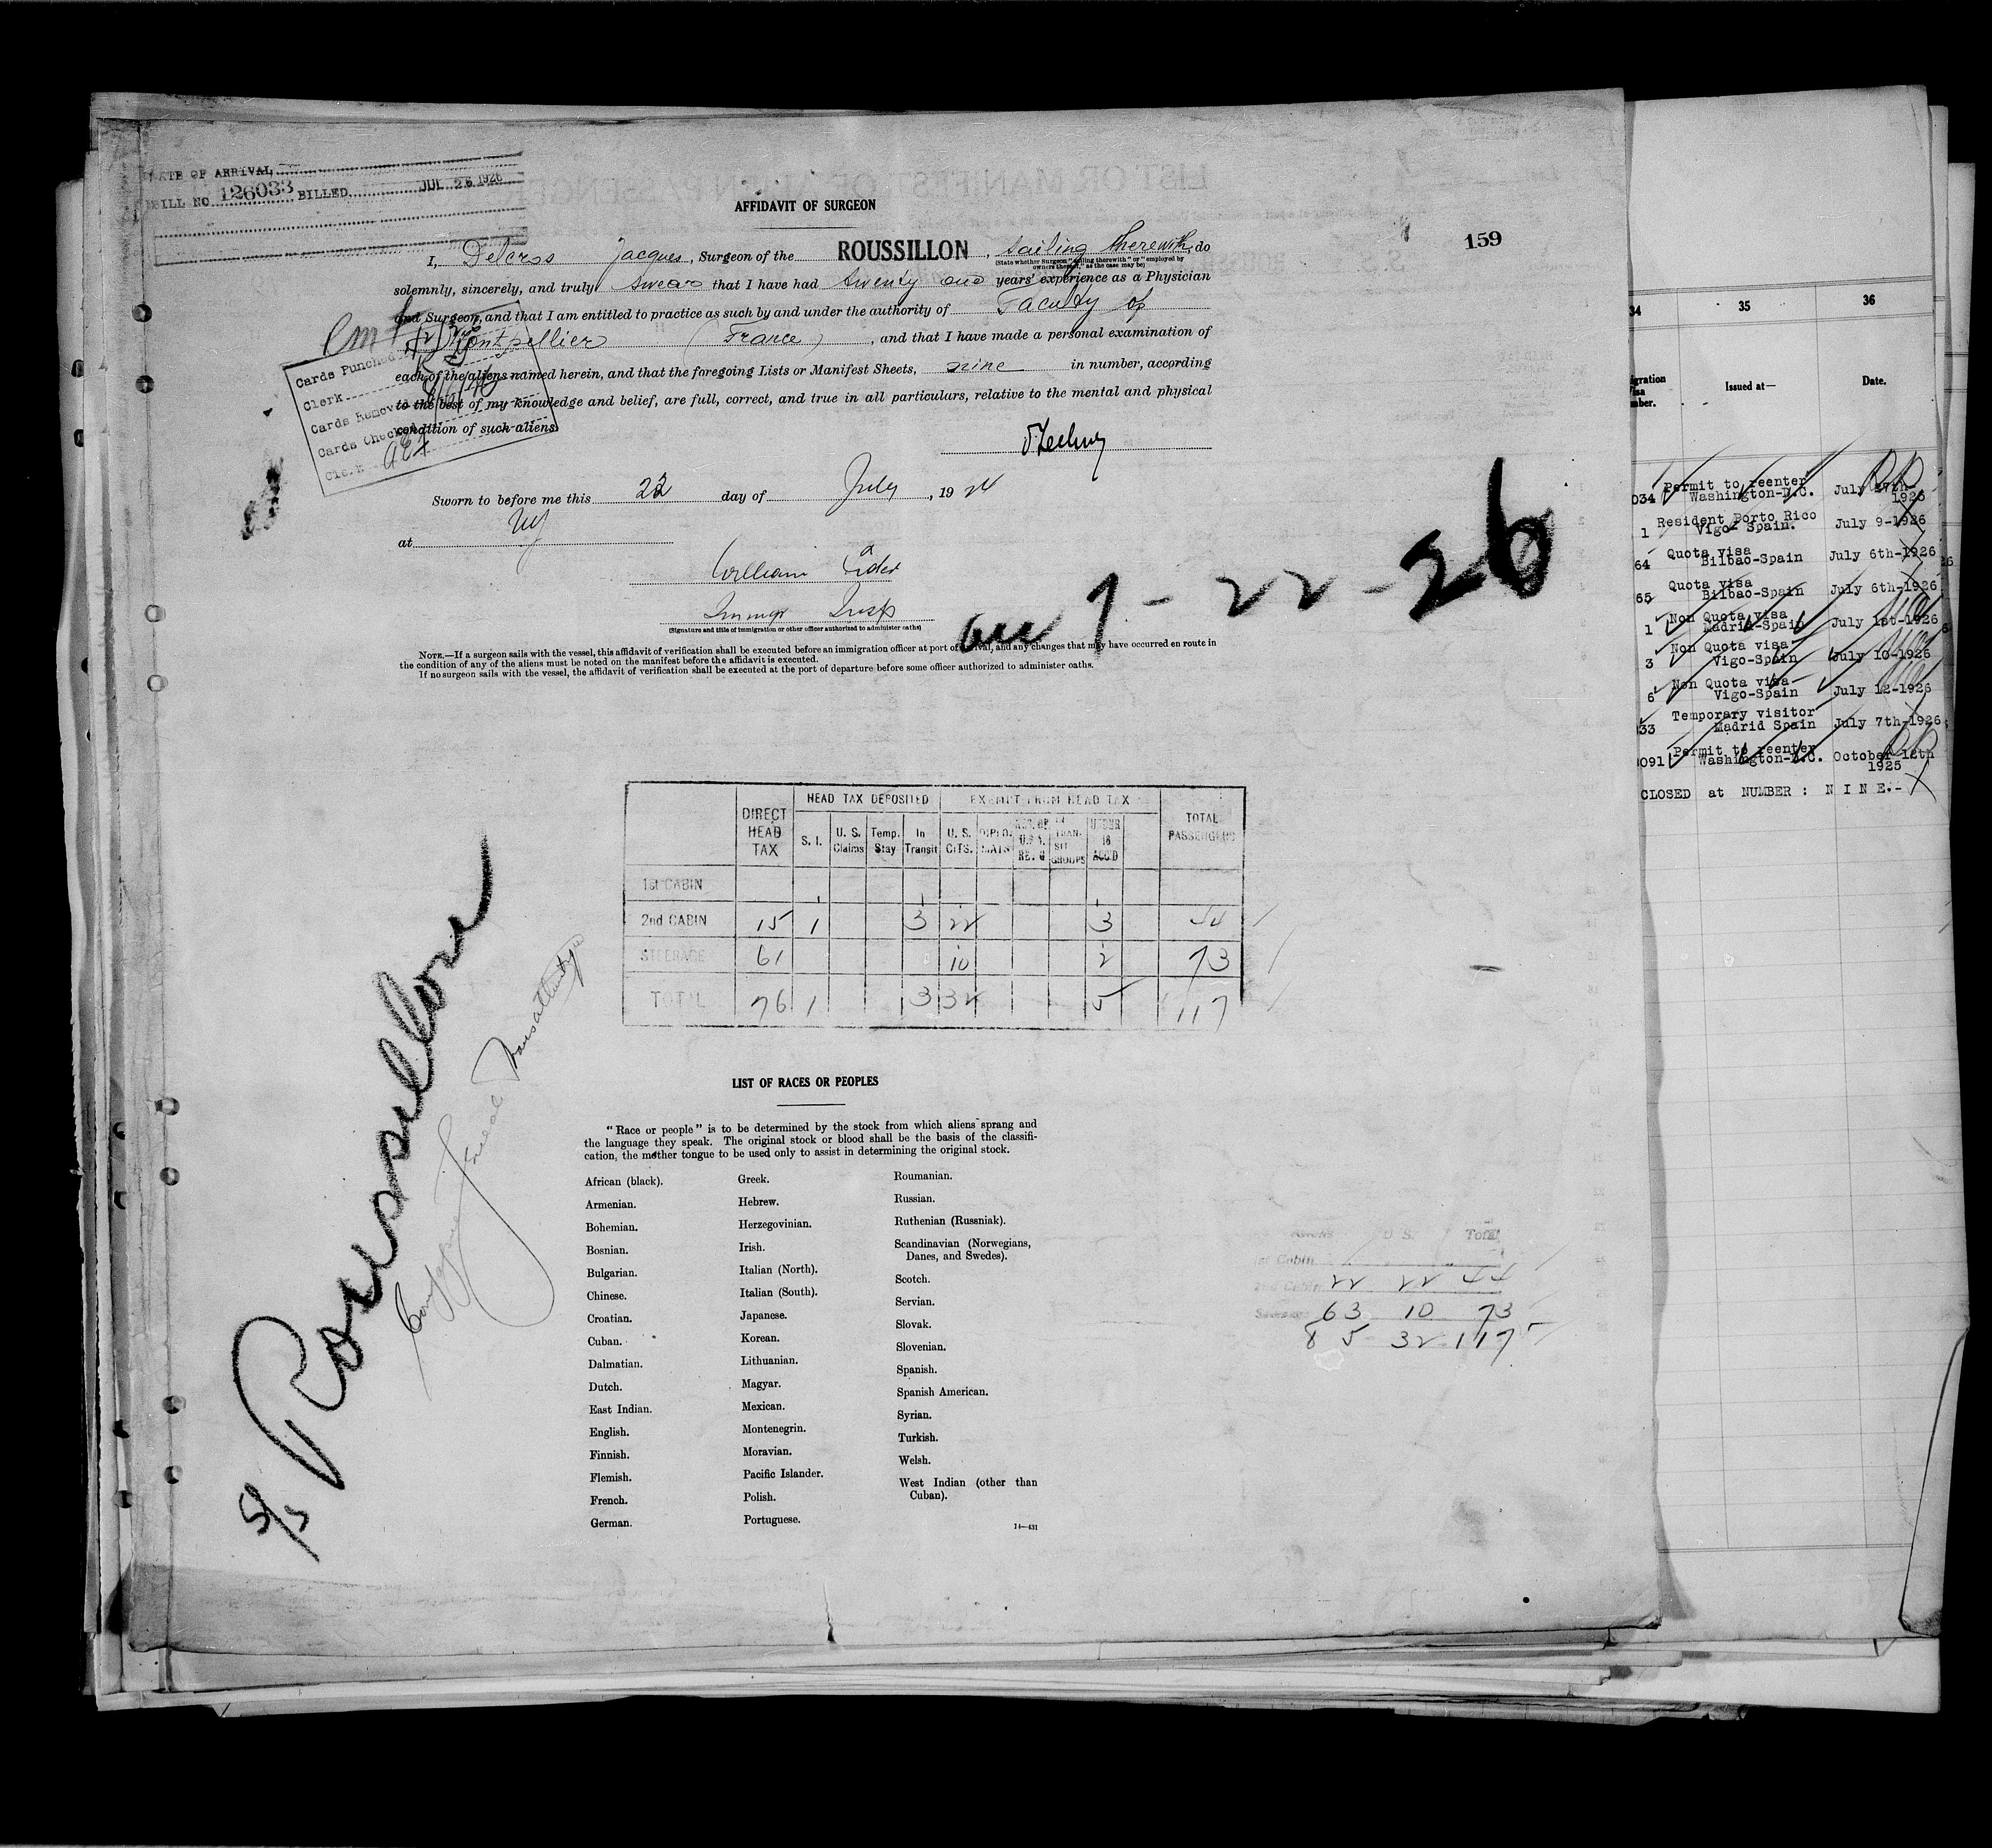 DATE OF ARRIVAL
BILL NO 126033 BILLED JUL 26 1926
AFFIDAVIT OF SURGEON
159
I, Delcros Jacques, Surgeon of the ROUSSILLON, sailing therewith, do
(State whether Surgeon "sailing therewith" or "employed by
owners thereof," as the case may be)
solemnly, sincerely, and truly swear that I have had twenty one years' experience as a Physician
and Surgeon, and that I am entitled to practice as such by and under the authority of Faculty of
Montpellier (France), and that I have made a personal examination of
each of the aliens named herein, and that the foregoing Lists or Manifest Sheets, nine in number, according
to the best of my knowledge and belief, are full, correct, and true in all particulars, relative to the mental and physical
condition of such aliens.
Cards Punched
Clerk
Cards Removed
Cards Checked
Clerk
Sworn to before me this 22 day of July, 19
at NY
William
Immgr Insp
(Signature and title of immigration or other officer authorized to administer oaths)
7-22-26
NOTE.—If a surgeon sails with the vessel, this affidavit of verification shall be executed before an immigration officer at port of arrival, and any changes that may have occurred en route in
the condition of any of the aliens must be noted on the manifest before the affidavit is executed.
If no surgeon sails with the vessel, the affidavit of verification shall be executed at the port of departure before some officer authorized to administer oaths.
HEAD TAX DEPOSITED EXEMPT FROM HEAD TAX
DIRECT HEAD TAX S. I. U. S. Claims Temp. Stay In Transit U. S. CITS. DIPLOMATS IN TRANSIT GROUPS UNDER 16 ACC'D TOTAL PASSENGERS
1st CABIN
2nd CABIN 15 1 3 22 3 44
STEERAGE 61 10 2 73
TOTAL 76 1 3 32 5 117
S/S Roussillon
Compagnie Generale Transatlantique
LIST OF RACES OR PEOPLES
"Race or people" is to be determined by the stock from which aliens sprang and
the language they speak. The original stock or blood shall be the basis of the classifi-
cation, the mother tongue to be used only to assist in determining the original stock.
African (black).
Armenian.
Bohemian.
Bosnian.
Bulgarian.
Chinese.
Croatian.
Cuban.
Dalmatian.
Dutch.
East Indian.
English.
Finnish.
Flemish.
French.
German.
Greek.
Hebrew.
Herzegovinian.
Irish.
Italian (North).
Italian (South).
Japanese.
Korean.
Lithuanian.
Magyar.
Mexican.
Montenegrin.
Moravian.
Pacific Islander.
Polish.
Portuguese.
Roumanian.
Russian.
Ruthenian (Russniak).
Scandinavian (Norwegians,
Danes, and Swedes).
Scotch.
Servian.
Slovak.
Slovenian.
Spanish.
Spanish American.
Syrian.
Turkish.
Welsh.
West Indian (other than
Cuban).
14—431
Aliens U S. Total
1st Cabin
2nd Cabin 22 22 44
Steerage 63 10 73
85 32 117
34 35 36
Issued at— Date.
034 Permit to reenter
Washington-D.C. July 27th 1926
1 Resident Porto Rico
Vigo- Spain. July 9-1926
64 Quota visa
Bilbao-Spain July 6th-1926
65 Quota visa
Bilbao-Spain July 6th-1926
1 Non Quota visa
Madrid-Spain July 1st-1926
3 Non Quota visa
Vigo-Spain July 10-1926
6 Non Quota visa
Vigo-Spain July 12-1926
33 Temporary visitor
Madrid Spain July 7th-1926
091 Permit to reenter
Washington-D.C. October 12th
1925
CLOSED at NUMBER : N I N E.-